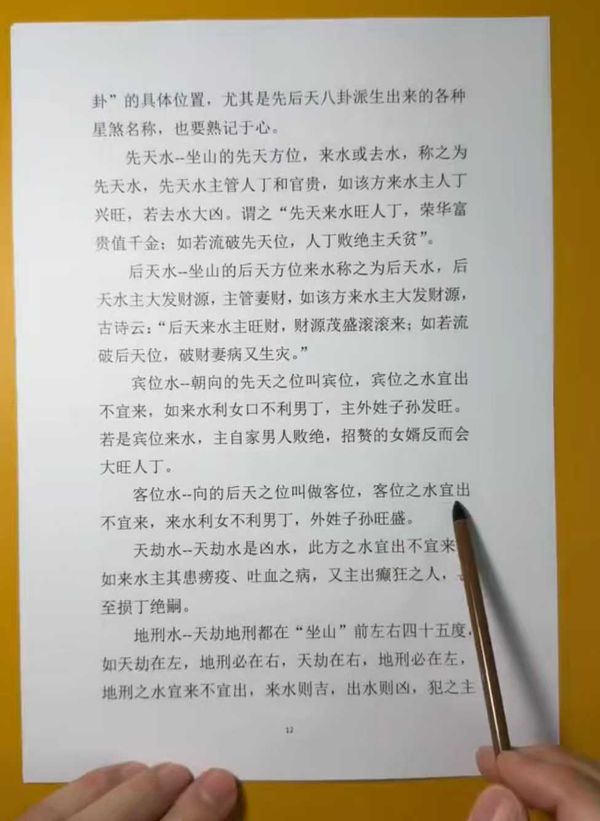 卦”的具体位置，尤其是先后天八卦派生出来的各种
星煞名称，也要熟记于心。
先天水--坐山的先天方位，来水或去水，称之为
先天水，先天水主管人丁和官贵，如该方来水主人丁
兴旺，若去水大凶。谓之“先天来水旺人丁，荣华富
贵值千金；如若流破先天位，人丁败绝主夭贫”。
后天水--坐山的后天方位来水称之为后天水，后
天水主大发财源，主管妻财，如该方来水主大发财源，
古诗云：“后天来水主旺财，财源茂盛滚滚来；如若流
破后天位，破财妻病又生灾。”
宾位水--朝向的先天之位叫宾位，宾位之水宜出
不宜来，如来水利女口不利男丁，主外姓子孙发旺。
若是宾位来水，主自家男人败绝，招赘的女婿反而会
大旺人丁。
客位水--向的后天之位叫做客位，客位之水宜出
不宜来，来水利女不利男丁，外姓子孙旺盛。
天劫水--天劫水是凶水，此方之水宜出不宜来
如来水主其患痨疫、吐血之病，又主出癫狂之人，
至损丁绝嗣。
地刑水--天劫地刑都在“坐山”前左右四十五度，
如天劫在左，地刑必在右，天劫在右，地刑必在左，
地刑之水宜来不宜出，来水则吉，出水则凶，犯之主
12